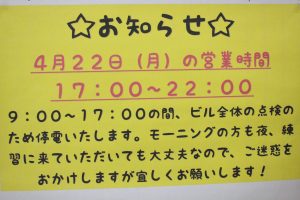 ☆お知らせ☆
4月22日(月)の営業時間
17:00～22:00
9:00～17:00の間、ビル全体の点検の
ため停電いたします。モーニングの方も夜、練
習に来ていただいても大丈夫なので、ご迷惑を
おかけしますが宜しくお願いします!